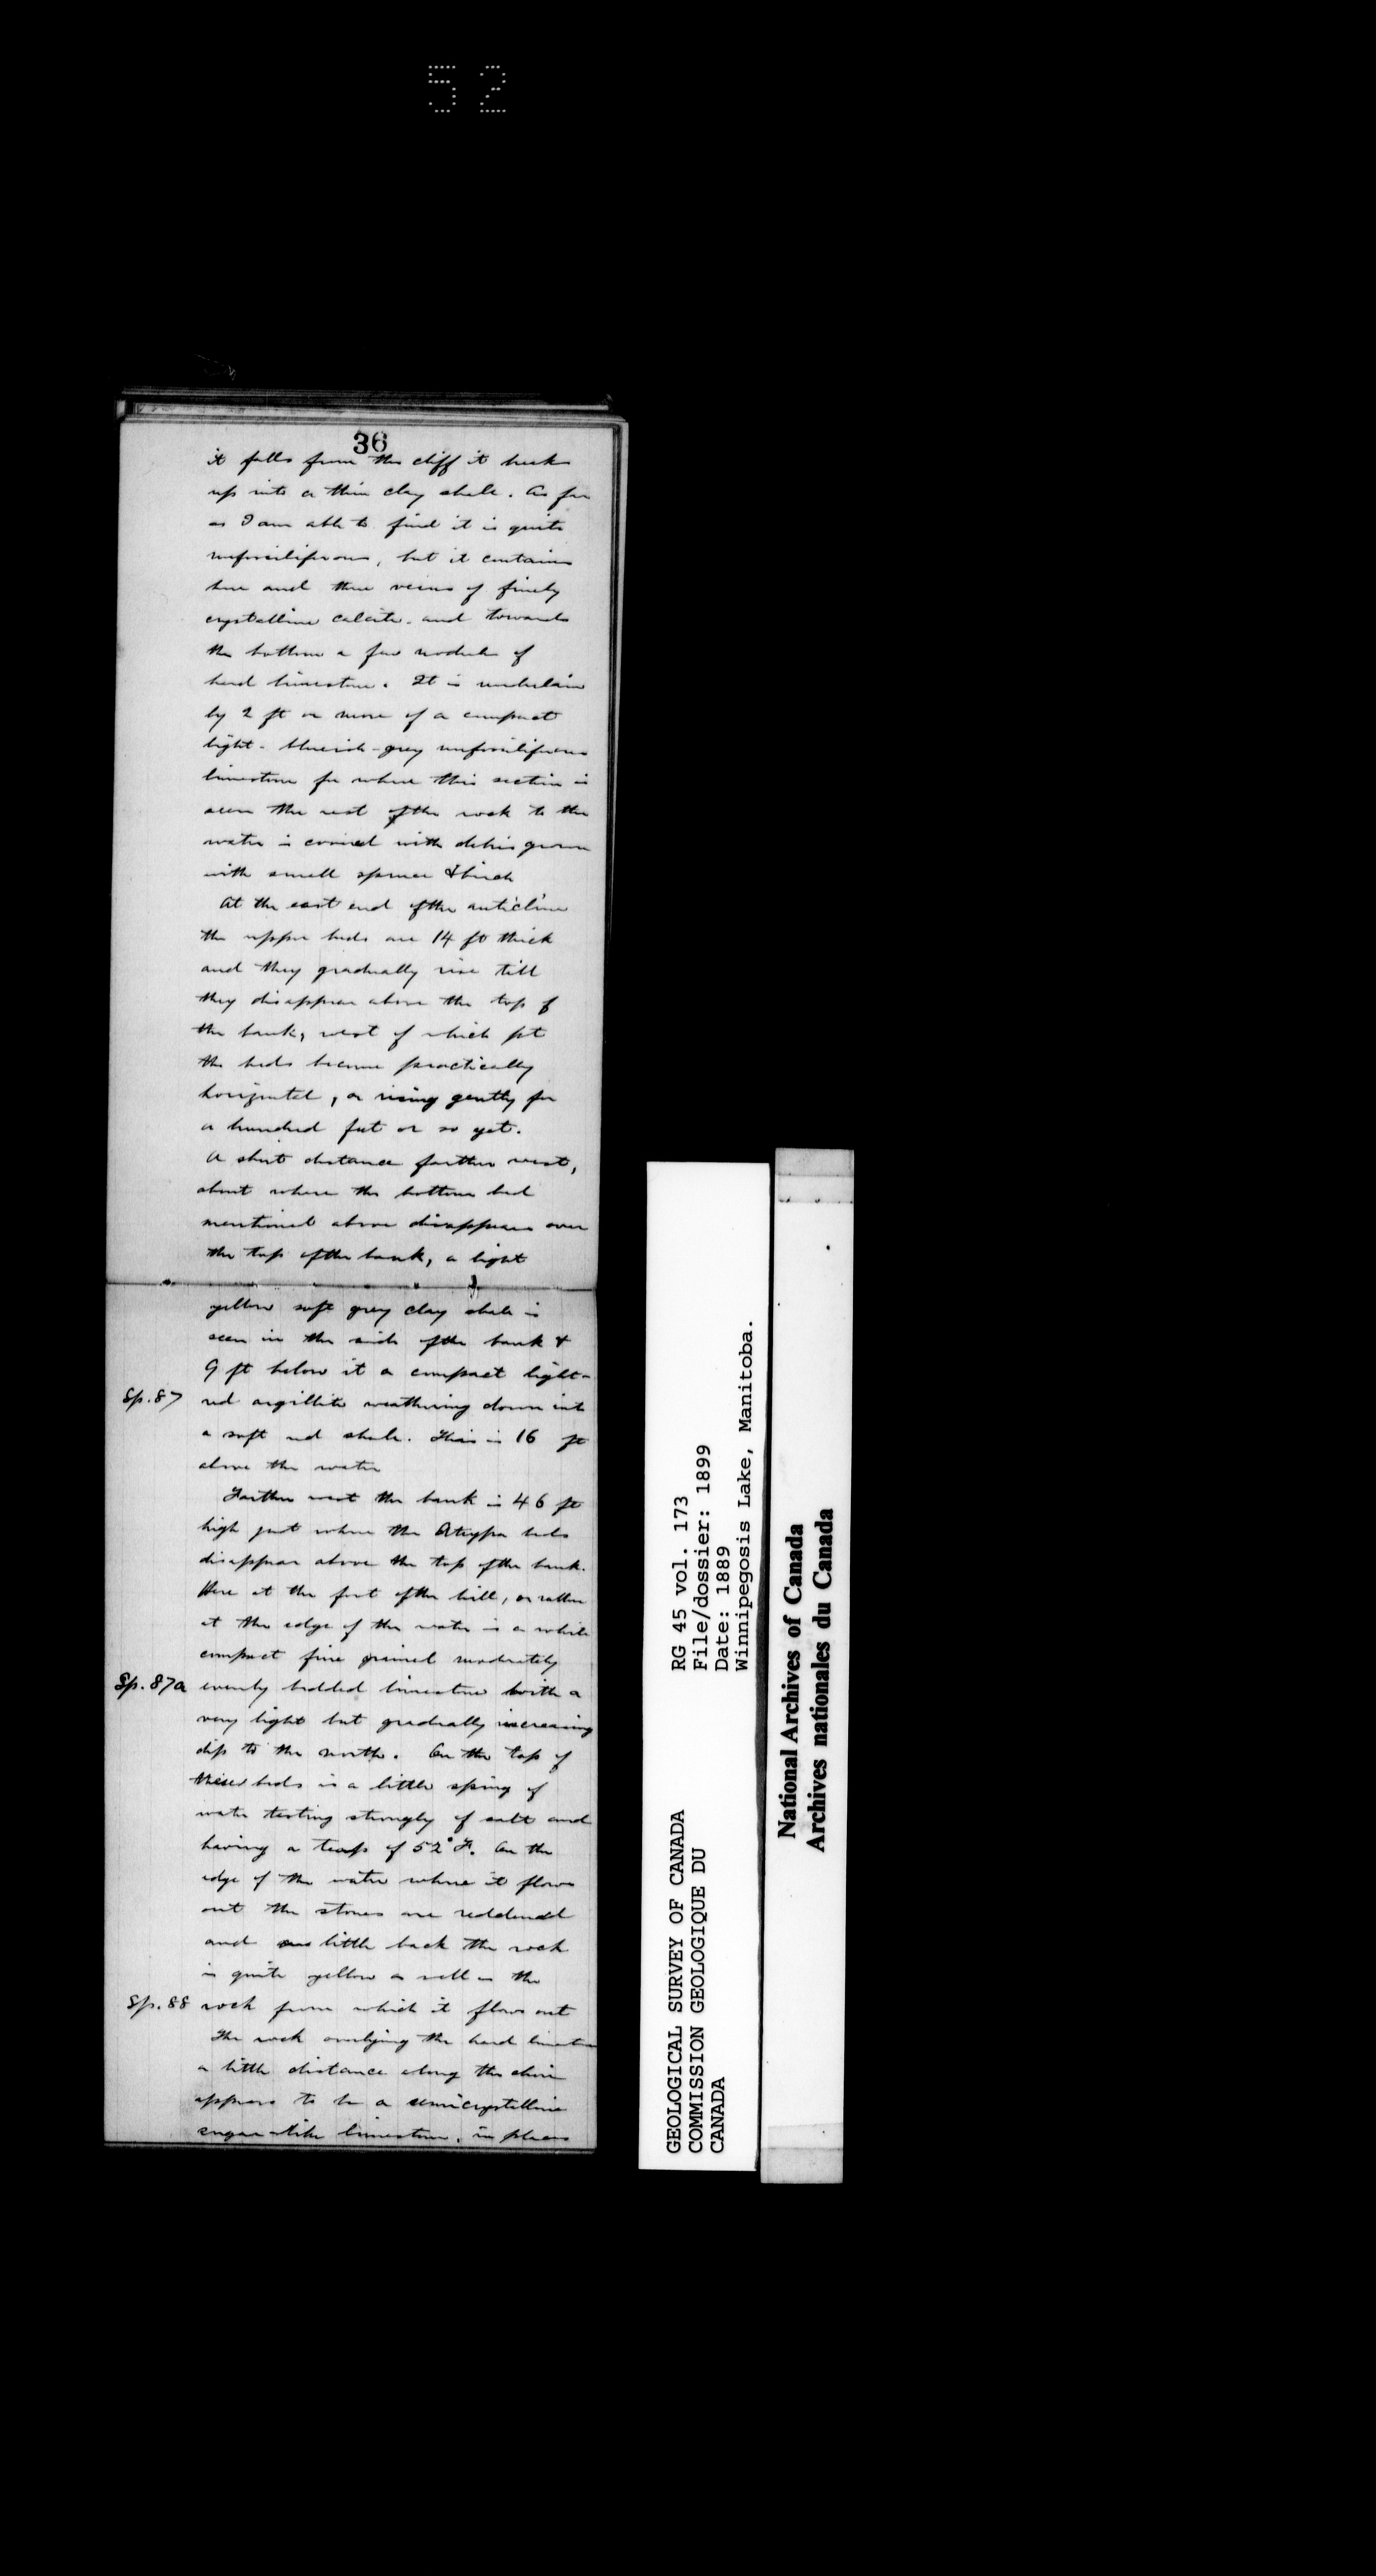 52
36
it falls from the cliff it breaks
up into a thin clay shale. As far
as I am able to find it is quite
unfossiliferous, but it contains
here and there veins of finely
crystalline calcite. and towards
the bottom a few nodules of
hard limestone. It is underlain
by 2 ft or more of a compact
light-blueish-grey unfossiliferous
limestone for where this section is
seen the rest of the rock to the
water is covered with debris grown
with small spruce & birch
At the east end of the anticline
the upper beds are 14 ft thick
and they gradually rise till
they disappear above the top of
the bank, west of which pt
the beds become practically
horizontal, or rising gently for
a hundred feet or so yet.
A short distance farther west,
about where the bottom bed
mentioned above disappears over
the top of the bank, a light
yellow soft grey clay shale is
seen in the side of the bank &
9 ft below it a compact light-
Sp. 87 red argillite weathering down into
a soft red shale. This is 16 ft
above the water
Farther west the bank is 46 ft
high just where the Atrypa beds
disappear above the top of the bank.
Here at the foot of the hill, or rather
at the edge of the water is a white
compact fine grained moderately
Sp. 87a evenly bedded limestone with a
very light but gradually increasing
dip to the north. On the top of
these beds is a little spring of
water tasting strongly of salt and
having a temp of 52° F. On the
edge of the water where it flows
out the stones are reddened
and little back the rock
is quite yellow as well as the
Sp. 88 rock from which it flows out
The rock overlying the hard limestone
a little distance along the shore
appears to be a semicrystalline
sugar-like limestone, in places
GEOLOGICAL SURVEY OF CANADA
COMMISSION GEOLOGIQUE DU
CANADA
RG 45 vol. 173
File/dossier: 1899
Date: 1889
Winnipegosis Lake, Manitoba.
National Archives of Canada
Archives nationales du Canada